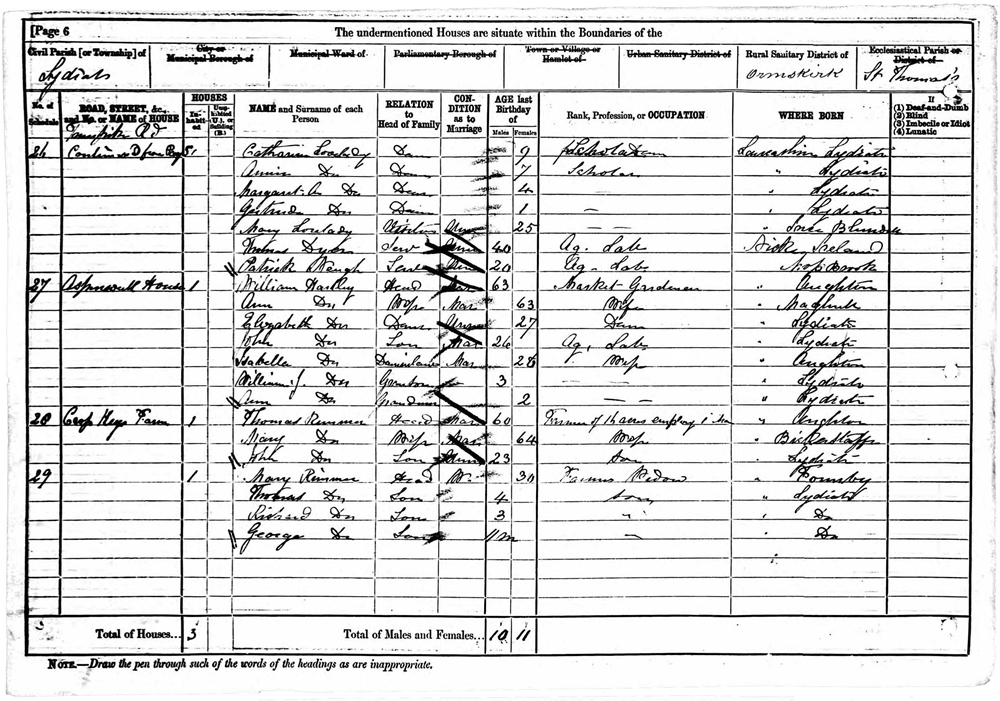 [Page 6 The undermentioned Houses are situate within the Boundaries of the
Civil Parish [or Township] of City or Municipal Borough of Municipal Ward of Parliamentary Borough of Town or Village or Hamlet of Urban Sanitary District of Rural Sanitary District of Ecclesiastical Parish or District of
Lydiate Ormskirk St Thomas's
No. of Schedule ROAD, STREET, &c., and No. or NAME of HOUSE HOUSES Inhabited Uninhabited (U.), or Building (B.) NAME and Surname of each Person RELATION to Head of Family CONDITION as to Marriage AGE last Birthday of Males Females Rank, Profession, or OCCUPATION WHERE BORN If (1) Deaf-and-Dumb (2) Blind (3) Imbecile or Idiot (4) Lunatic
Rd
26 Catharine Lovelady Daur 9 Scholar Lancashire Lydiate
Annie Do Daur 7 Scholar " Lydiate
Margaret A Do Daur 4 " Lydiate
Gertrude Do Daur 1 — " Lydiate
Mary Lovelady Unm 25 — " Ince Blundell
Thomas Serv Unm 40 Ag. Lab Ireland
Patrick Serv Unm 20 Ag. Lab
27 Aspinwall House 1 William Head Mar 63 Market Gardener " Aughton
Ann Do Wife Mar 63 Wife " Maghull
Elizabeth Do Daur Unm 27 Daur " Lydiate
John Do Son Mar 26 Ag. Lab " Lydiate
Isabella Do Daurinlaw Mar 28 Wife " Aughton
William J. Do Grandson 3 — — — " Lydiate
Ann Do Grandaur 2 — — " Lydiate
28 Keys Farm 1 Thomas Rimmer Head Mar 60 Farmer of acres employ 1 " Aughton
Mary Do Wife Mar 64 Wife " Bickerstaffe
John Do Son Unm 23 Son " Lydiate
29 1 Mary Rimmer Head W 30 Farmers Widow " Formby
Thomas Do Son 4 Son " Lydiate
Richard Do Son 3 " " Do
George Do Son 11m — " Do
Total of Houses... 3 Total of Males and Females... 10 11
NOTE.—Draw the pen through such of the words of the headings as are inappropriate.